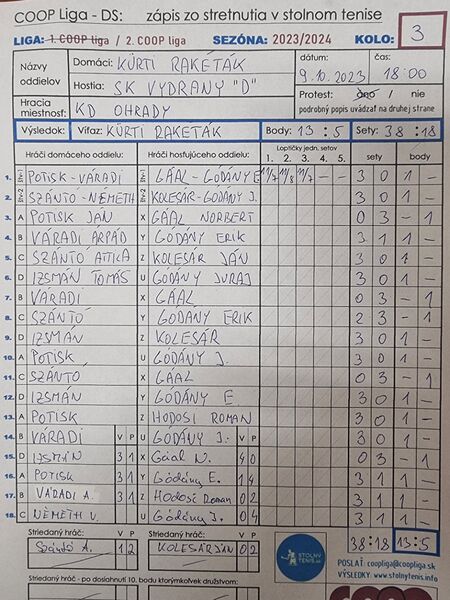 COOP Liga - DS: zápis zo stretnutia v stolnom tenise
LIGA: 1. COOP liga / 2. COOP liga SEZÓNA: 2023/2024 KOLO: 3
Názvy oddielov Domáci: KÜRTI RAKÉTÁK dátum: 9.10.2023 čas: 18:00
Hostia: SK VYDRANY "D" Protest: áno / nie
Hracia miestnosť: KD OHRADY podrobný popis uvádzať na druhej strane
Výsledok: Víťaz: KÜRTI RAKETÁK Body: 13 : 5 Sety: 38 : 18
Hráči domáceho oddielu: Hráči hosťujúceho oddielu: Loptičky jedn. setov 1. 2. 3. 4. 5. sety body
1. Štv-1 POTISK-VÁRADI Štv-1 GÁÁL-GÓDÁNY E 11/7 11/8 11/7 — — 3 0 1 -
2. Štv-2 SZÁNTÓ-NÉMETH Štv-2 KOLESÁR-GODÁNY J. 3 0 1 -
3. A POTISK JÁN X GÁÁL NORBERT 0 3 - 1
4. B VÁRADI ÁRPÁD Y GÓDÁNY ERIK 3 1 1 -
5. C SZÁNTÓ ATTILA Z KOLESÁR JÁN 3 0 1 -
6. D IZSMÁN TOMÁS U GODÁNY JURAJ 3 0 1 -
7. B VÁRADI X GÁAL 0 3 - 1
8. C SZÁNTÓ Y GODÁNY ERIK 2 3 - 1
9. D IZSMÁN Z KOLESÁR 3 0 1 -
10. A POTISK U GODÁNY J. 3 0 1 -
11. C SZÁNTÓ X GÁAL 0 3 - 1
12. D IZSMÁN Y GÓDÁNY E 3 0 1 -
13. A POTISK Z HODOSI ROMAN 3 0 1 -
14. B VÁRADI V P U GODÁNY J. V P 3 0 1 -
15. D IZSMÁN 3 1 X Gáal N. 4 0 0 3 - 1
16. A POTISK 3 1 Y Gódány E. 1 4 3 0 1 -
17. B VÁRADI A. 3 1 Z Hodosi Roman 0 2 3 1 1 -
18. C NÉMETH V. U Gódány J. 0 4 3 1 1 -
Striedaný hráč: Striedaný hráč: 38:18 13:5
Szántó A. 1 2 KOLESÁR JÁN 0 2
STOLNÝ TENIS
POSLAŤ: coopliga@coopliga.sk
VÝSLEDKY: www.stolnytenis.info
Striedaný hráč - po dosiahnutí 10. bodu ktorýmkoľvek družstvom: